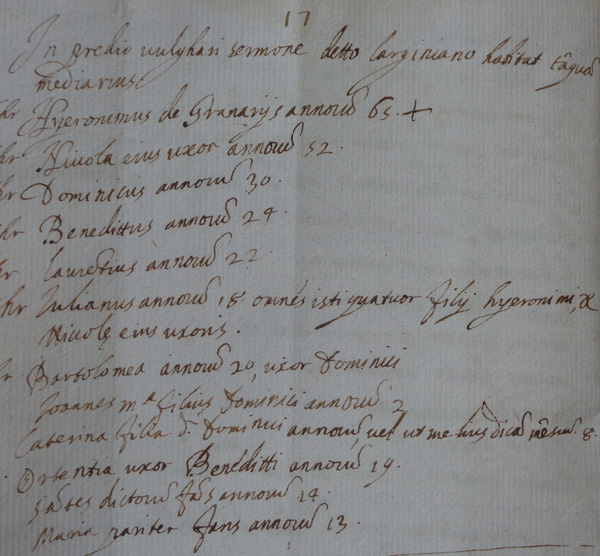 17
In predio vulghari sermone detto larginiano habitat tãquã
mediarius
hr Hyeronimus de Granarijs annorũ 65. +
hr Nicola eius uxor annorũ 52.
hr Dominicus annorũ 30.
hr Benedittus annorũ 24.
hr laurẽtius annorũ 22.
hr Iulianus annorũ 18. omnes isti quatuor filij hyeronimi, &
Nicolę eius uxoris.
hr Bartolomea annorũ 20, uxor Dominici
Ioannes m.a filius Dominici annorũ 2
Caterina filia d. Dominici annorũ, vel ut melius dicã mẽsiũ 8.
Ortentia uxor Beneditti annorũ 19.
annorũ 14.
Maria pariter annorũ 13.